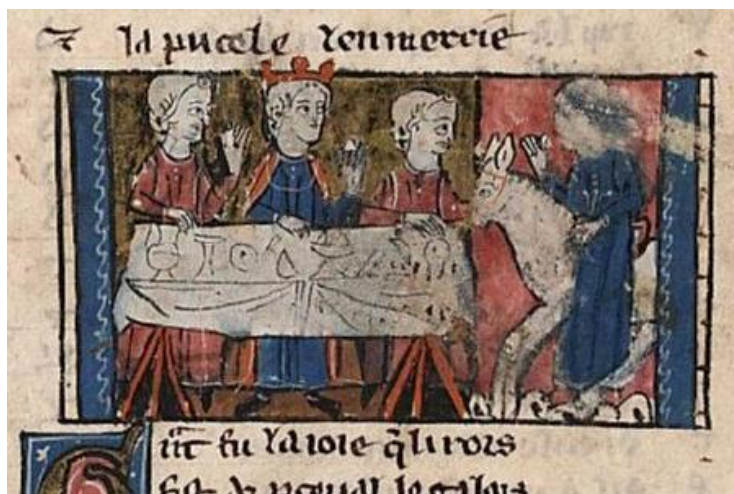 ⁊ la pucele lenmercie
Gᵃnt fu la ioie q̃ li rois
Fist de ꝑceual le galois